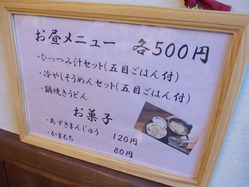 お昼メニュー 各500円
・ひっつみ汁セット(五目ごはん付)
・冷やしそうめんセット(五目ごはん付)
・鍋焼きうどん
お菓子
・あずきまんじゅう 120円
・かまもち 80円